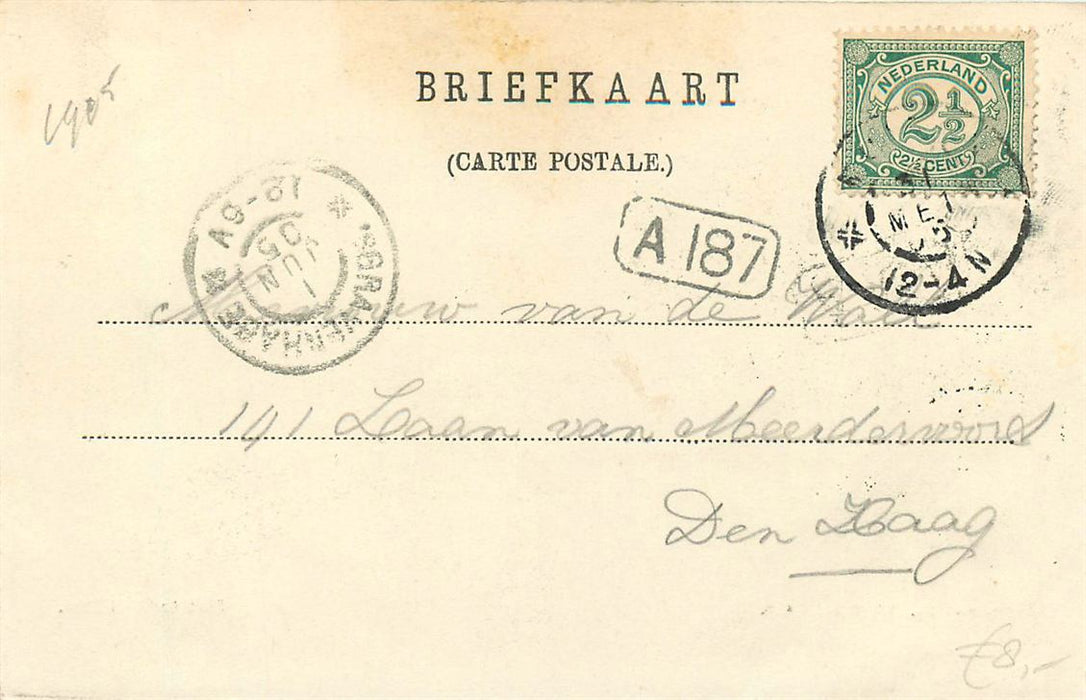 BRIEFKAART
(CARTE POSTALE.)
1905
NEDERLAND
2½
2½ CENT
31
MEI
05
12-4N
'S-GRAVENHAGE
12-6V
1
JUN
05
A 187
Mevrouw van de Wall
191 Laan van Meerdervoort
Den Haag
€8,-